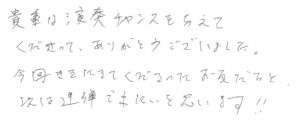 貴重な演奏チャンスを与えて
くださって、ありがとうございました。
今回ききにきてくださったお友だちと、
次は連弾できたらいいと思います!!